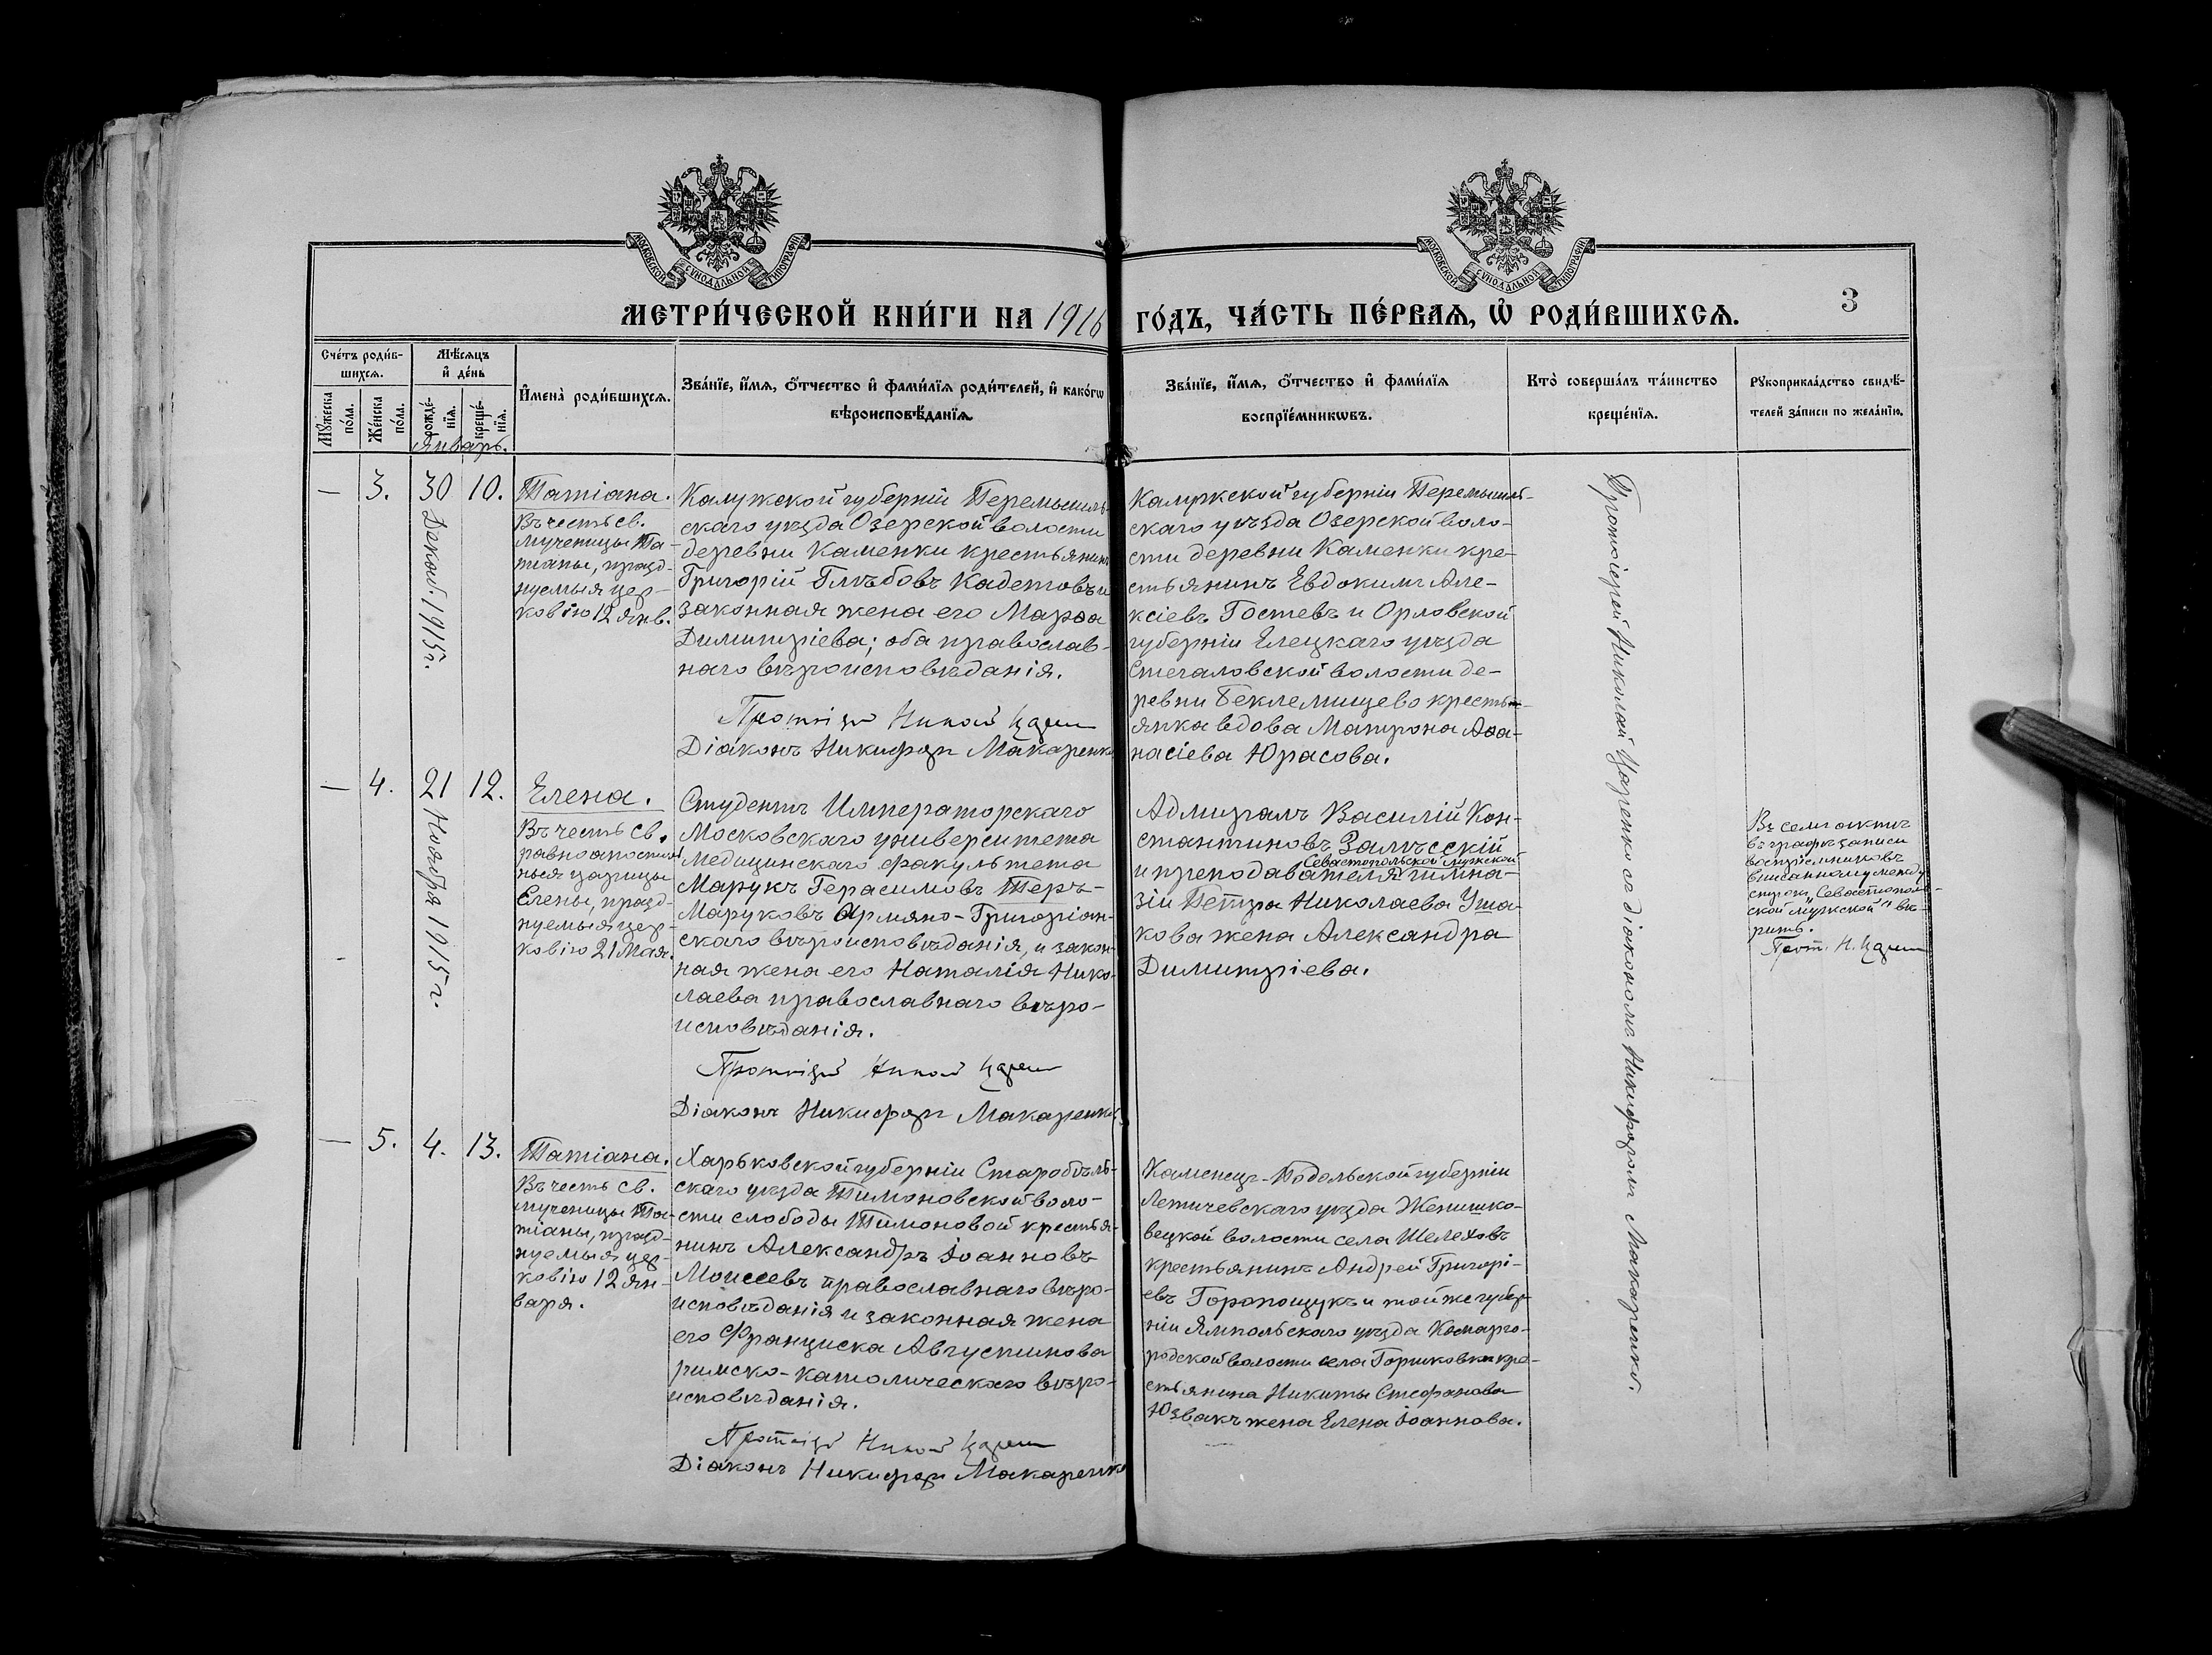 МОСКОВСКОЙ СѴНОДАЛЬНОЙ ТИПОГРАФІИ
МОСКОВСКОЙ СѴНОДАЛЬНОЙ ТИПОГРАФІИ
МЕТРИ́ЧЕСКОЙ КНИ́ГИ НА 1916
ГО́ДЪ, ЧА́СТЬ ПЕ́РВАѦ, Ѽ РОДИ́ВШИХСѦ.
3
Сче́тъ роди́в-
шихсѧ.
Мѣ́сѧцъ
и҆ де́нь
И҆мена̀ роди́вшихсѧ.
Зва́нїе, и҆́мѧ, ѻ҆́тчество и҆ фами́лїѧ роди́телей, и҆ како́гѡ
вѣроисповѣ́данїѧ.
Зва́нїе, и҆́мѧ, ѻ҆́тчество и҆ фами́лїѧ
воспрїе́мникѡвъ.
Кто̀ соверша́лъ та́инство
креще́нїѧ.
Рꙋкоприкла́дство свидѣ́-
телей за́писи по жела́нїю.
Мꙋ́жеска
по́ла.
Же́нска
по́ла.
рожде́-
нїѧ.
креще́-
нїѧ.
Январь.
— 3. 30 10. Татіана.
Декаб. 1915 г.
Въ честь св.
мученицы Та-
тіаны, празд-
нуемыя цер-
ковію 12 янв.
Калужской губерніи Перемышль-
скаго уѣзда Озерской волости
деревни Каменки крестьянинъ
Григорій Глѣбовъ Кадетовъ и
законная жена его Марѳа
Димитріева; оба православ-
наго вѣроисповѣданія.
Діаконъ Никифоръ Макаренко
Калужской губерніи Перемышль-
скаго уѣзда Озерской воло-
сти деревни Каменки кре-
стьянинъ Евдокимъ Але-
ксіевъ Гостевъ и Орловской
губерніи Елецкаго уѣзда
Стегаловской волости де-
ревни Беклемищево кресть-
янка вдова Матрона Аѳа-
насіева Юрасова.
Протоіерей Николай Царенко съ діакономъ Никифоромъ Макаренко.
— 4. 21 12. Елена.
Ноября 1915 г.
Въ честь св.
равноапостоль
ныя царицы
Елены, празд-
нуемыя цер-
ковію 21 Мая.
Студентъ Императорскаго
Московскаго университета
Медицинскаго факультета
Марукъ Герасимовъ Теръ-
Маруковъ Армяно-Григоріан-
скаго вѣроисповѣданія, и закон-
ная жена его Наталія Нико-
лаева православнаго вѣро-
исповѣданія.
Діаконъ Никифоръ Макаренко
Адмиралъ Василій Кон-
стантиновъ Залѣсскій
Севастопольской мужской
и преподавателя гимна-
зіи Петра Николаева Уша-
кова жена Александра
Димитріева.
Въ семъ актѣ
въ графѣ записи
воспріемниковъ
вписанному между
строкъ „Севастополь-
ской мужской" вѣ-
рить.
Прот. Н. Царенко
— 5. 4. 13. Татіана.
Въ честь св.
мученицы Та-
тіаны, празд-
нуемыя цер-
ковію 12 Ян-
варя.
Харьковской губерніи Старобѣль-
скаго уѣзда Тимоновской воло-
сти слободы Тимоновой крестья-
нинъ Александръ Іоанновъ
Моисеевъ православнаго вѣро-
исповѣданія и законная жена
его Франциска Августинова
римско-католическаго вѣро-
исповѣданія.
Діаконъ Никифоръ Макаренко
Каменец-Подольской губерніи
Летичевскаго уѣзда Женишко-
вецкой волости села Шелеховъ
крестьянинъ Андрей Григорі-
евъ Горопощукъ и той же губер-
ніи Ямпольскаго уѣзда Комарго-
родской волости села Горишковки кре-
стьянина Никиты Стефанова
Юзвакъ жена Елена Іоаннова.